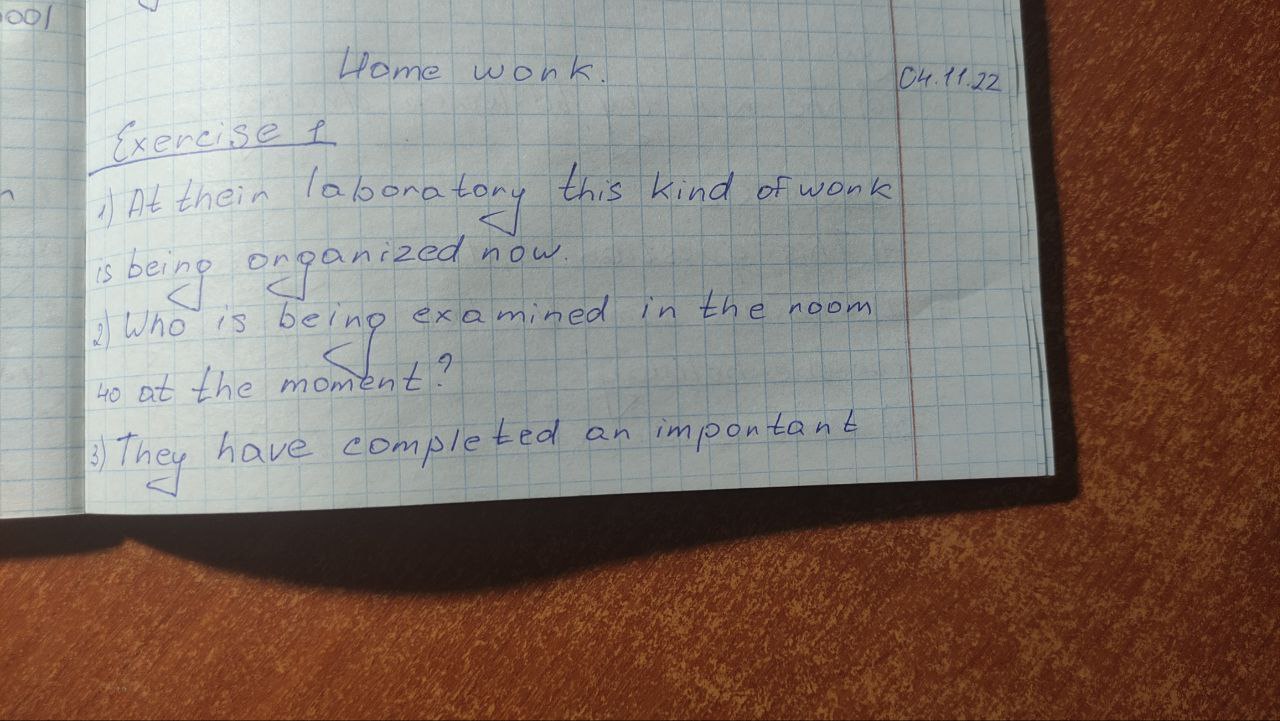 001
Home work.
04.11.22
Exercise 1
1) At their laboratory this kind of work
is being organized now.
2) Who is being examined in the room
40 at the moment?
3) They have completed an important